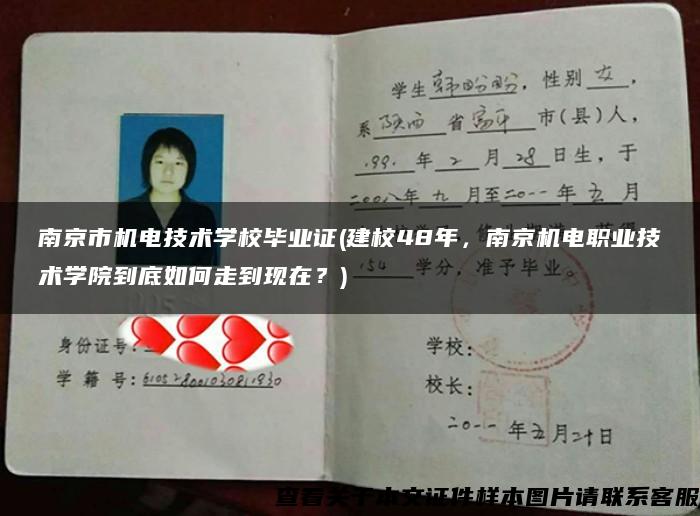 学生韩盼盼，性别女，
系陕西省富平市(县)人，
1991年2月28日生，于
二00八年九月至二0一一年五月
南京市机电技术学校毕业证(建校48年，南京机电职业技
术学院到底如何走到现在？)
154学分，准予毕业。
身份证号：
学籍号：
学校：
校长：
二0一一年五月二十日
查看关于本文证件样本图片请联系客服